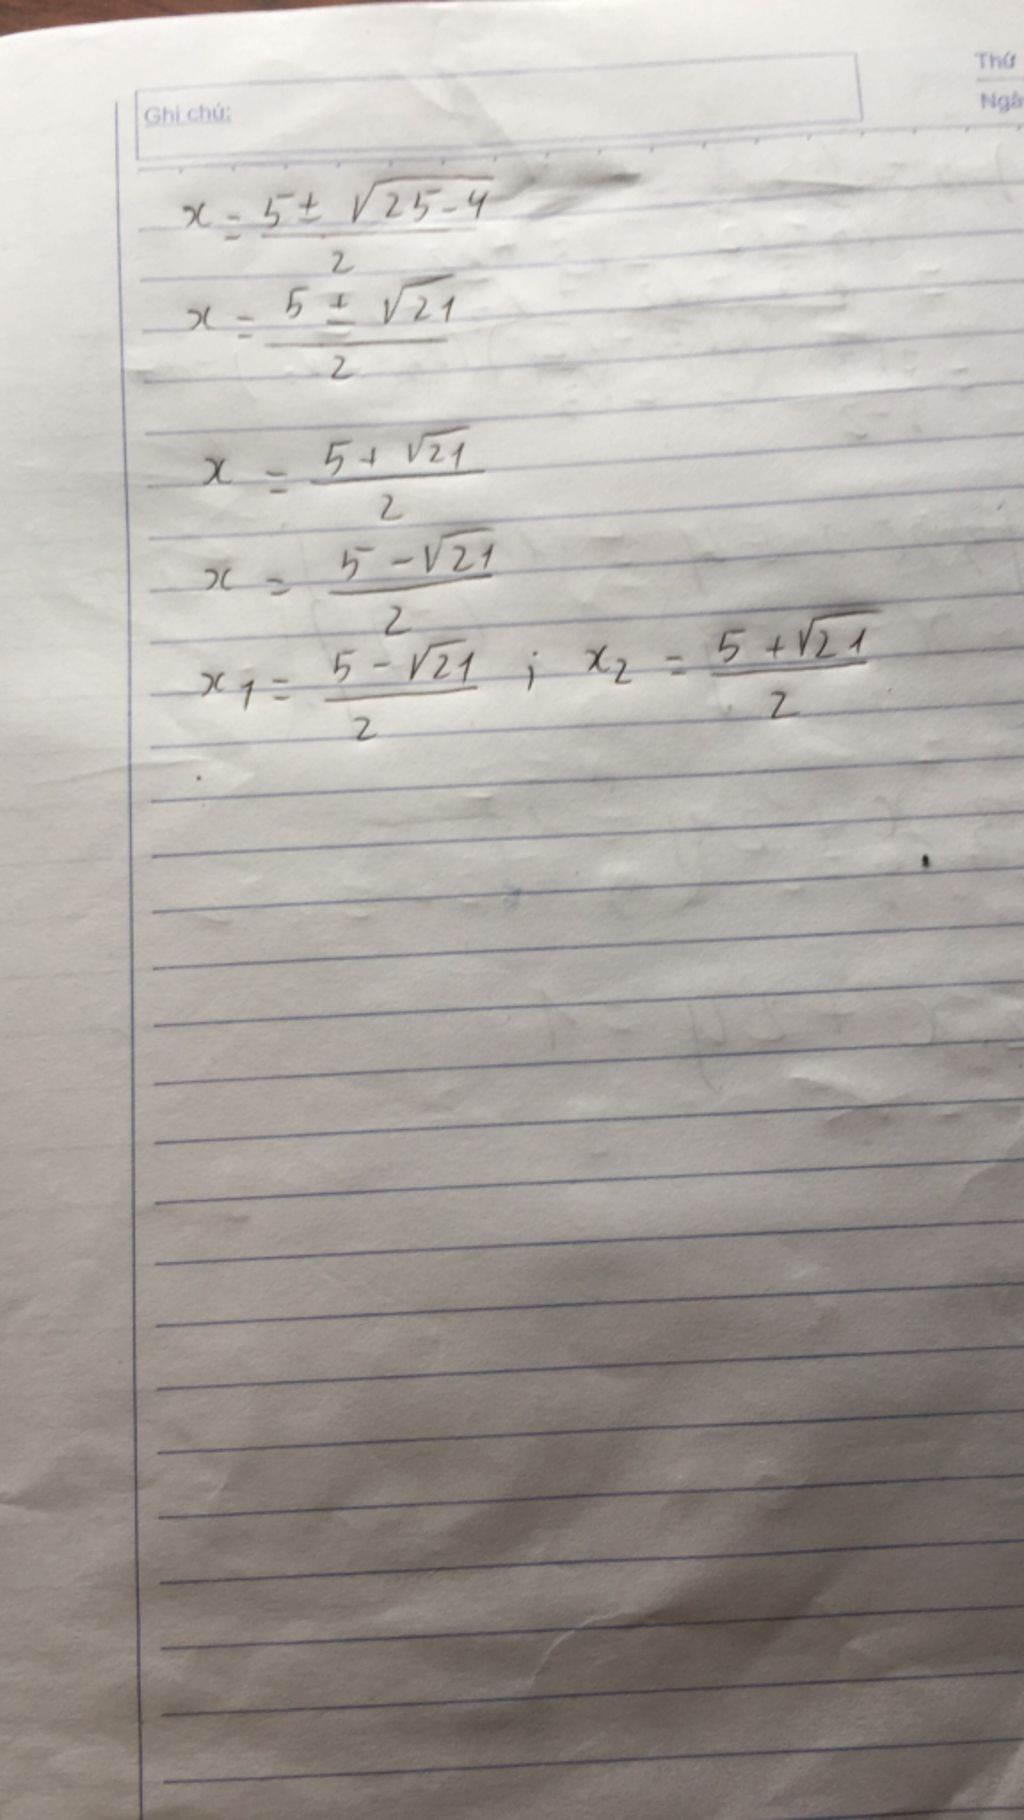 Thứ
Ghi chú:
Ngà
x = (5 ± √(25-4))/2
x = (5 ± √21)/2
x = (5 + √21)/2
x = (5 - √21)/2
x₁ = (5 - √21)/2 ; x₂ = (5 + √21)/2